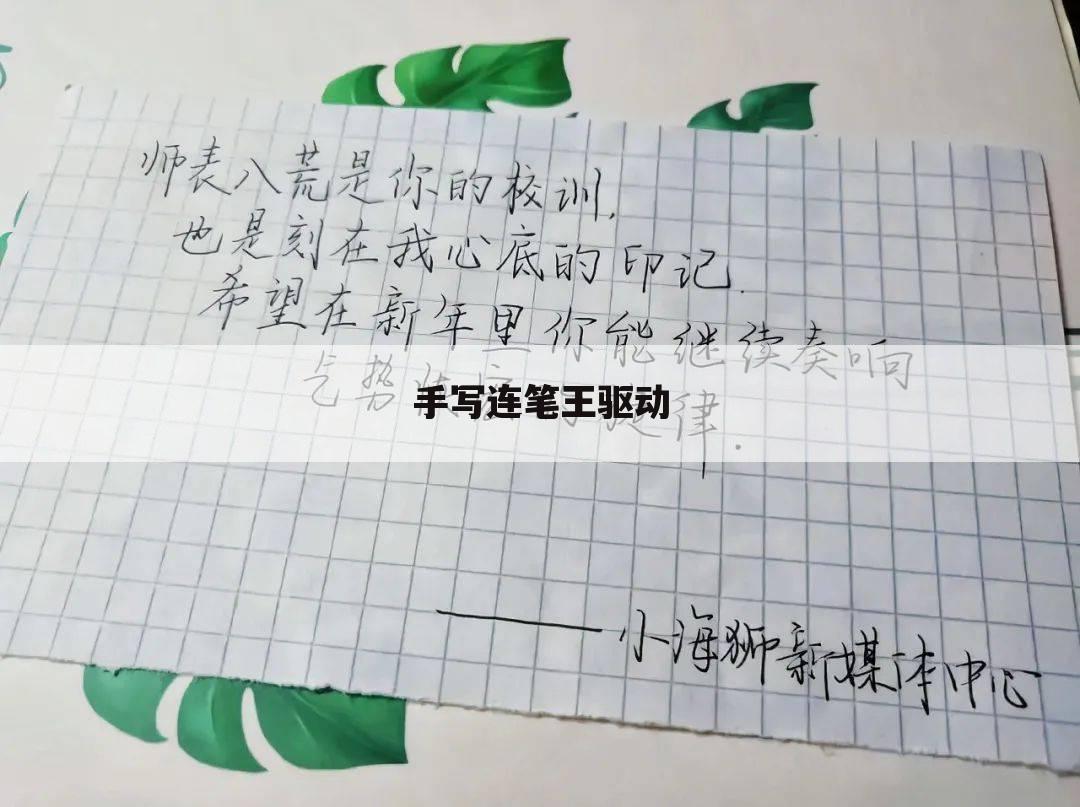 师表八荒是你的校训,
也是刻在我心底的印记.
希望在新年里你能继续奏响
气势
律.
手写连笔王驱动
——小海狮新媒体中心